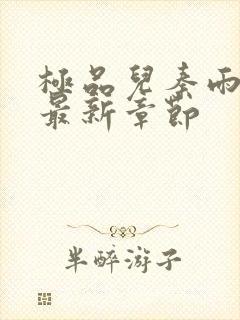 極品兒秦雨
最新章節
半醉游子